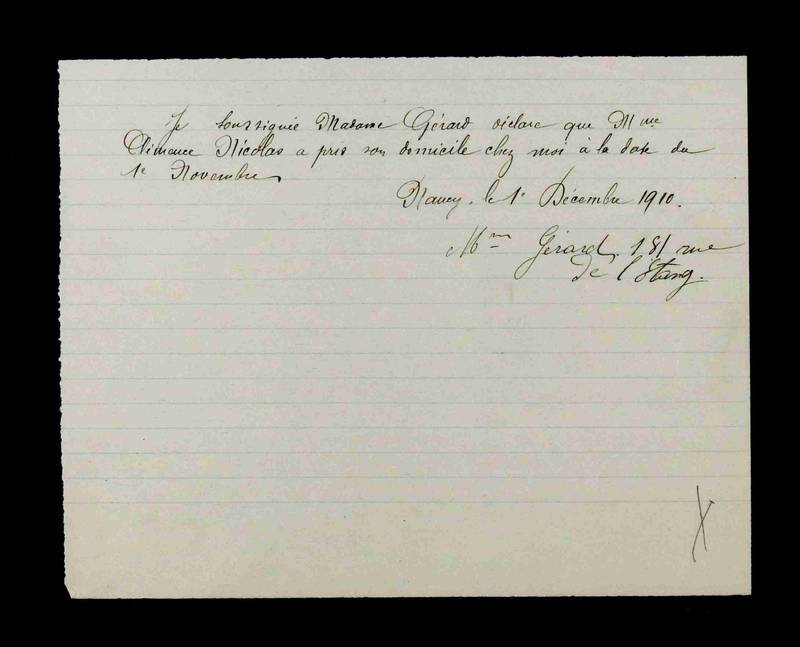 Je soussignée Madame Gérard déclare que Mme
Clémence Nicolas a pris son domicile chez moi à la date du
1e Novembre
Nancy. le 1e Décembre 1910.
Mme Gérard. 181 rue
de l'Étang.